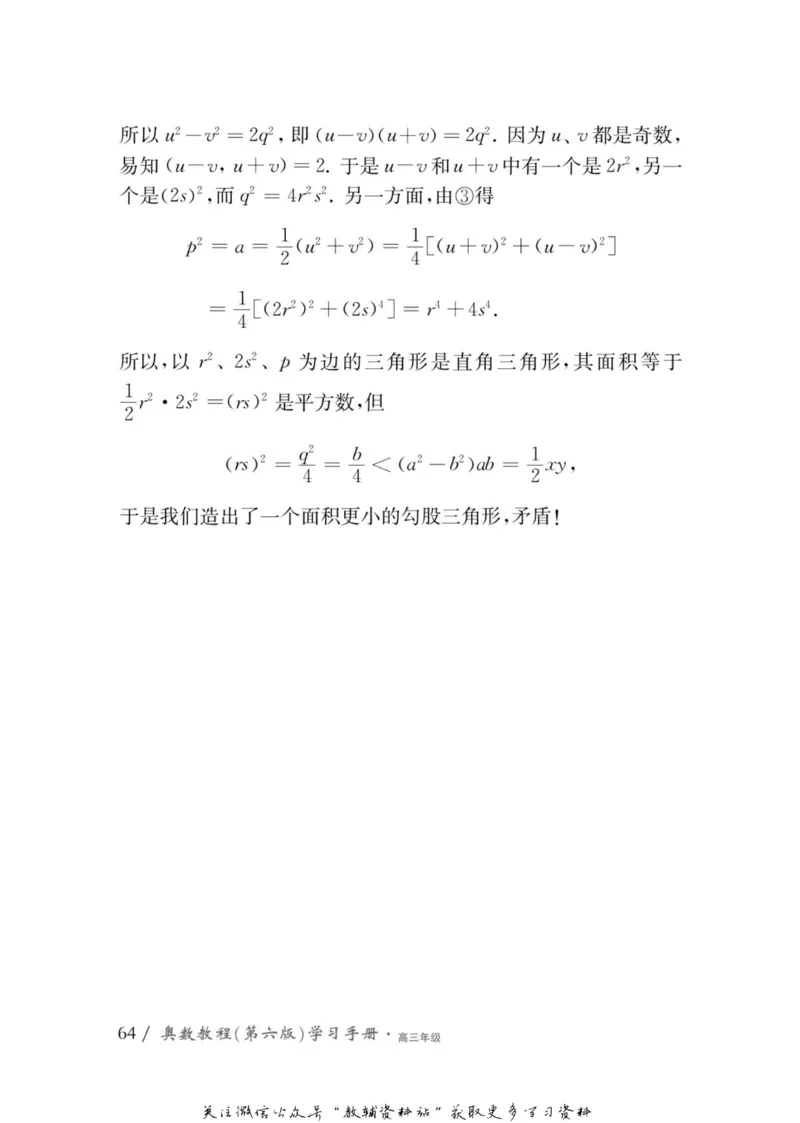 所以 u²－v² = 2q²，即 (u－v)(u＋v) = 2q². 因为 u、v 都是奇数，
易知 (u－v, u＋v) = 2. 于是 u－v 和 u＋v 中有一个是 2r²，另一
个是(2s)²，而 q² = 4r²s². 另一方面，由③得
p² = a = 1/2(u²＋v²) = 1/4[(u＋v)²＋(u－v)²]
= 1/4[(2r²)²＋(2s)⁴] = r⁴＋4s⁴.
所以，以 r²、2s²、p 为边的三角形是直角三角形，其面积等于
1/2 r²·2s² =(rs)² 是平方数，但
(rs)² = q²/4 = b/4 < (a²－b²)ab = 1/2 xy，
于是我们造出了一个面积更小的勾股三角形，矛盾！
64 / 奥数教程(第六版)学习手册·高三年级
关注微信公众号“教辅资料站”获取更多学习资料